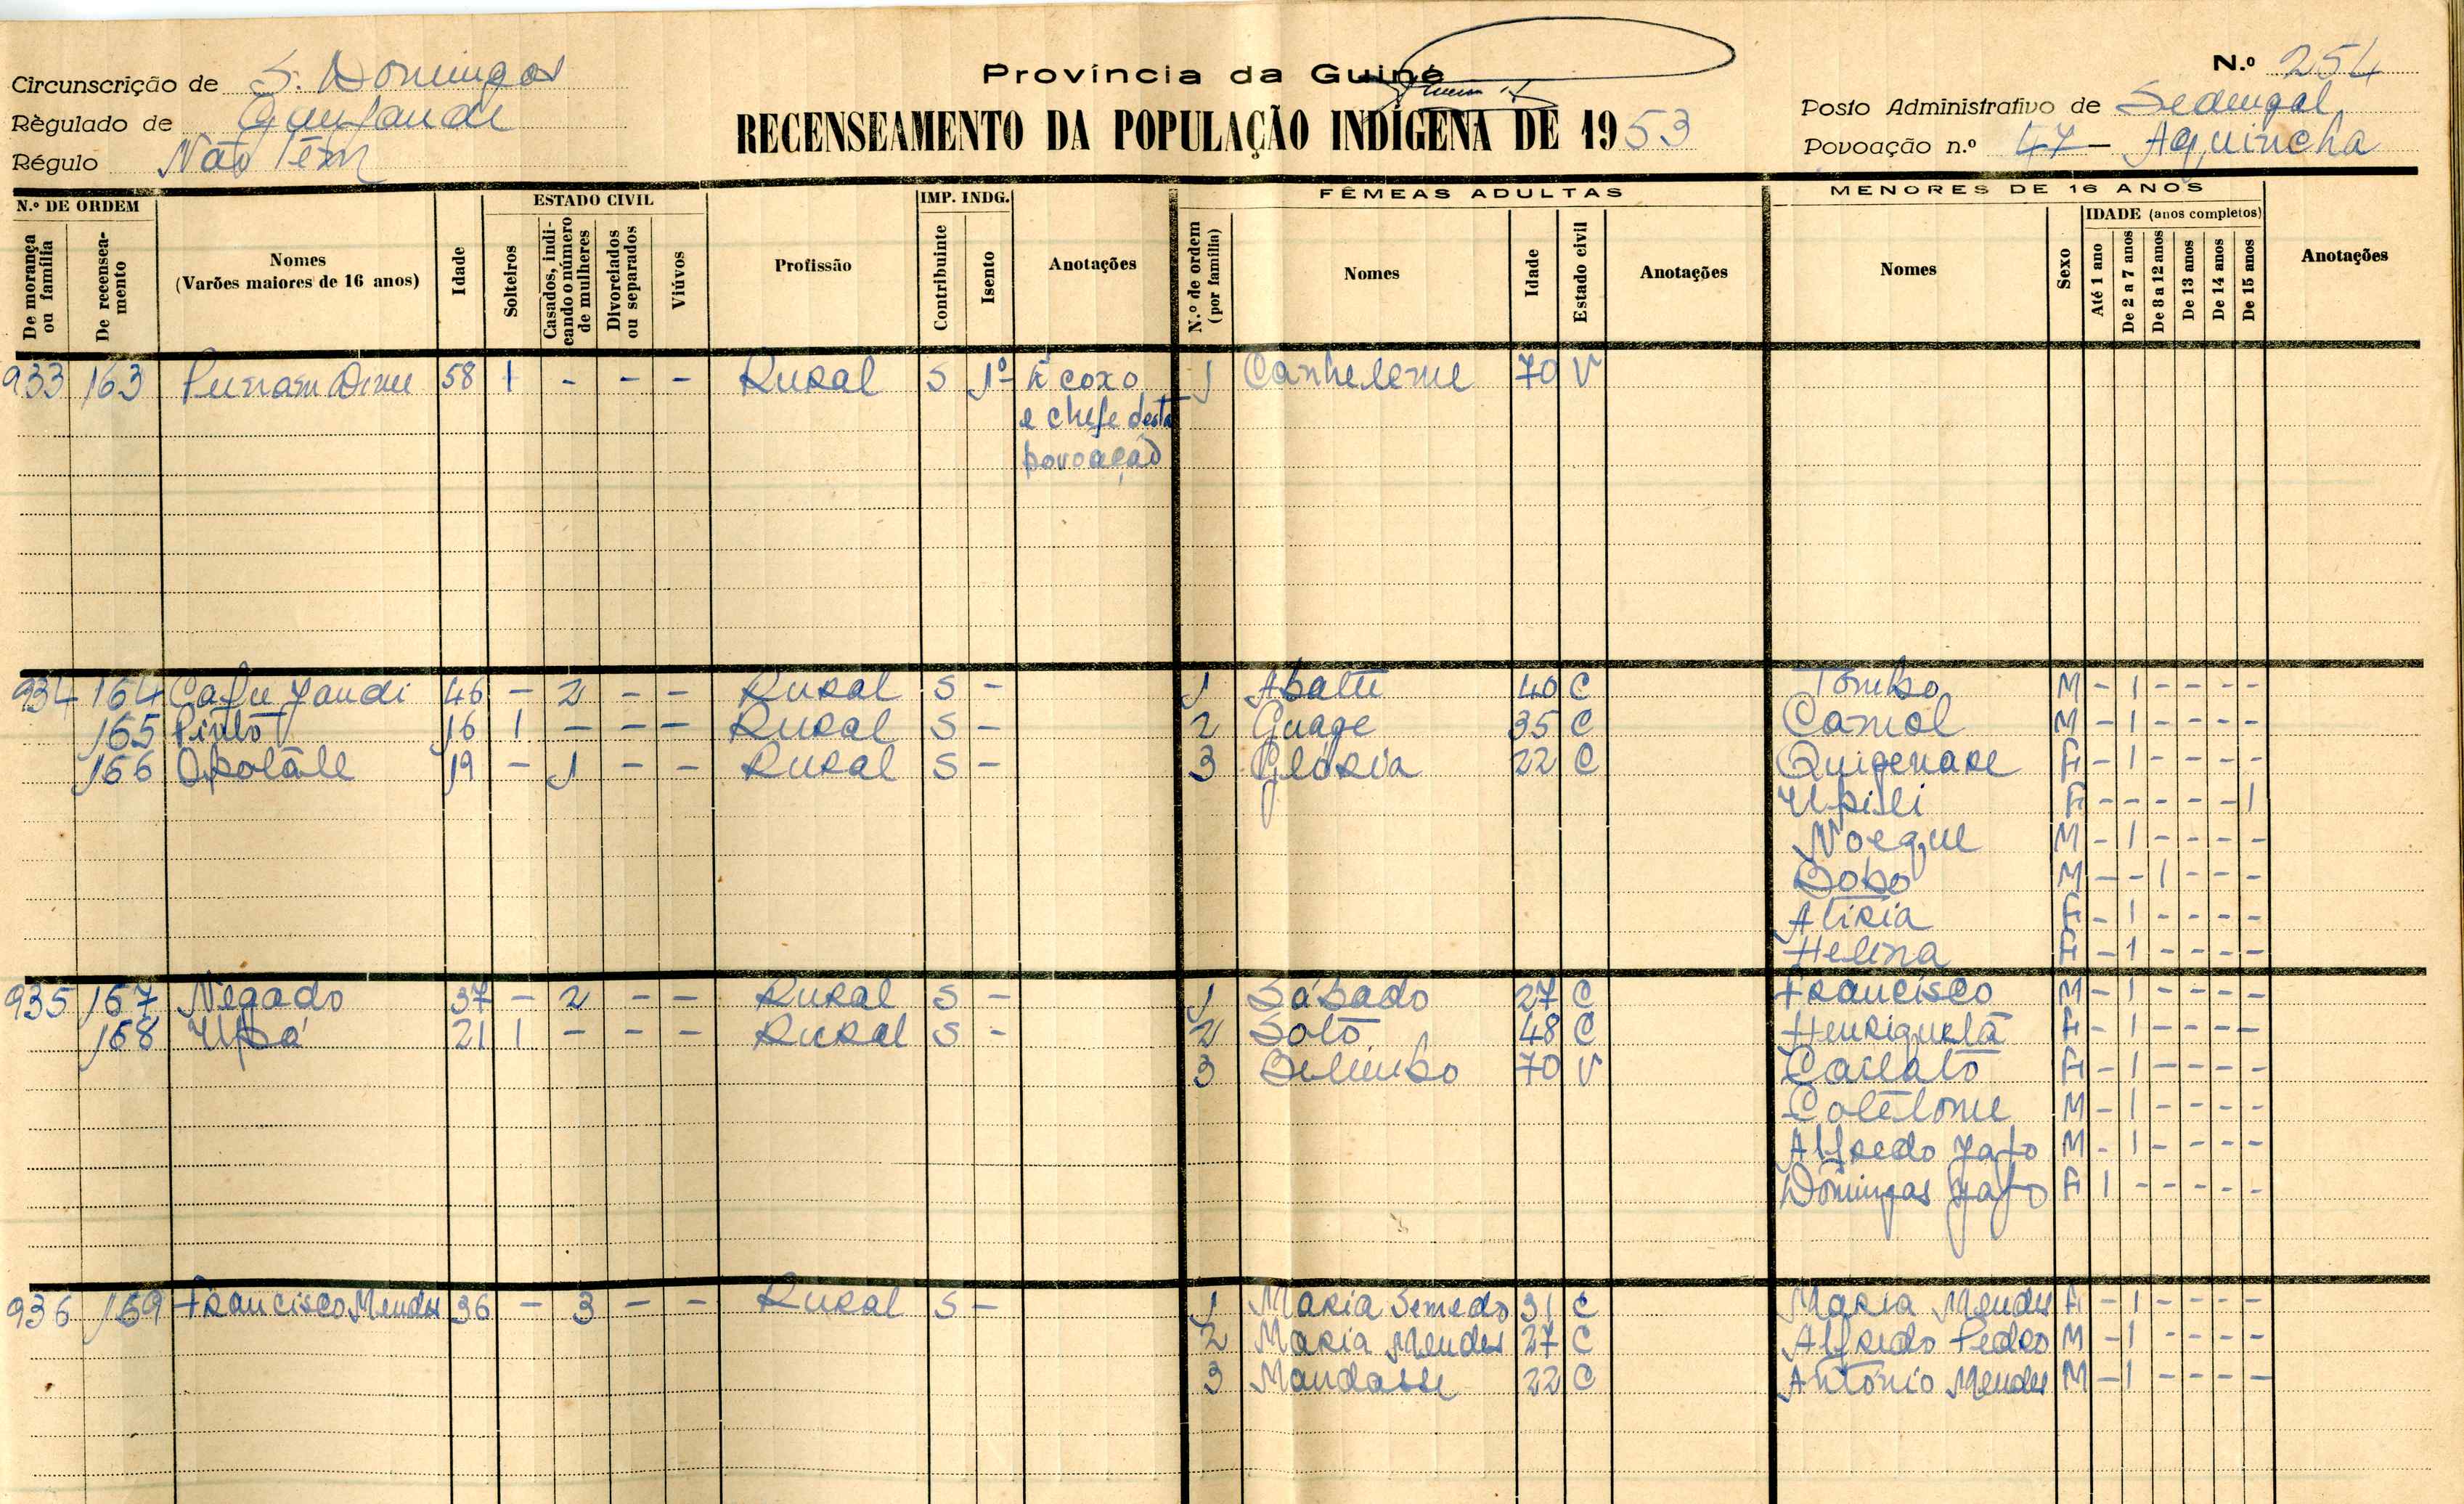 Província da Guiné
RECENSEAMENTO DA POPULAÇÃO INDÍGENA DE 1953
Circunscrição de S. Domingos
Règulado de
Régulo Não Tem
N.º 254
Posto Administrativo de Sedengal
Povoação n.º 47 - Aquincha
N.º DE ORDEM
De morança ou família
De recenseamento
Nomes
(Varões maiores de 16 anos)
Idade
ESTADO CIVIL
Solteiros
Casados, indicando o número de mulheres
Divorciados ou separados
Viúvos
Profissão
IMP. INDG.
Contribuinte
Isento
Anotações
FÊMEAS ADULTAS
N.º de ordem (por família)
Nomes
Idade
Estado civil
Anotações
MENORES DE 16 ANOS
Nomes
Sexo
IDADE (anos completos)
Até 1 ano
De 2 a 7 anos
De 8 a 12 anos
De 13 anos
De 14 anos
De 15 anos
Anotações
933 163 58 1 - - - Rural S 1º É coxo 1 Canheleme 70 V
e chefe desta
povoação
934 164 46 - 2 - - Rural S - 1 Abatu 40 C Tombo M - 1 - - - -
165 Pinto 16 1 - - - Rural S - 2 Guage 35 C Camol M - 1 - - - -
166 19 - 1 - - Rural S - 3 Glória 22 C Quigenare F - 1 - - - -
Upili F - - - - - 1
Noeque M - 1 - - - -
Bobo M - - 1 - - -
Aliria F - 1 - - - -
Helena F - 1 - - - -
935 167 Negado 37 - 2 - - Rural S - 1 Sábado 27 C Francisco M - 1 - - - -
168 Upá 21 1 - - - Rural S - 2 48 C Henriqueta F - 1 - - - -
3 70 V F - 1 - - - -
M - 1 - - - -
Alfredo M - 1 - - - -
Domingas F 1 - - - - -
936 169 Francisco Mendes 36 - 3 - - Rural S - 1 Maria Semedo 31 C Maria Mendes F - 1 - - - -
2 Maria Mendes 27 C Alfredo Pedro M - 1 - - - -
3 Mandasse 22 C António Mendes M - 1 - - - -